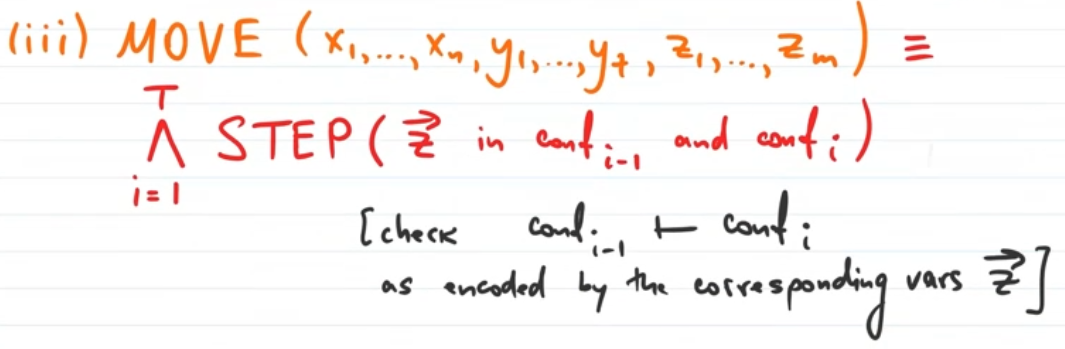 (iii) MOVE (x₁,...,xₙ,y₁,...,yₜ, z₁,...,zₘ) ≡
T
⋀ STEP(z⃗ in confᵢ₋₁ and confᵢ)
i=1
[check confᵢ₋₁ ⊢ confᵢ
as encoded by the corresponding vars z⃗]